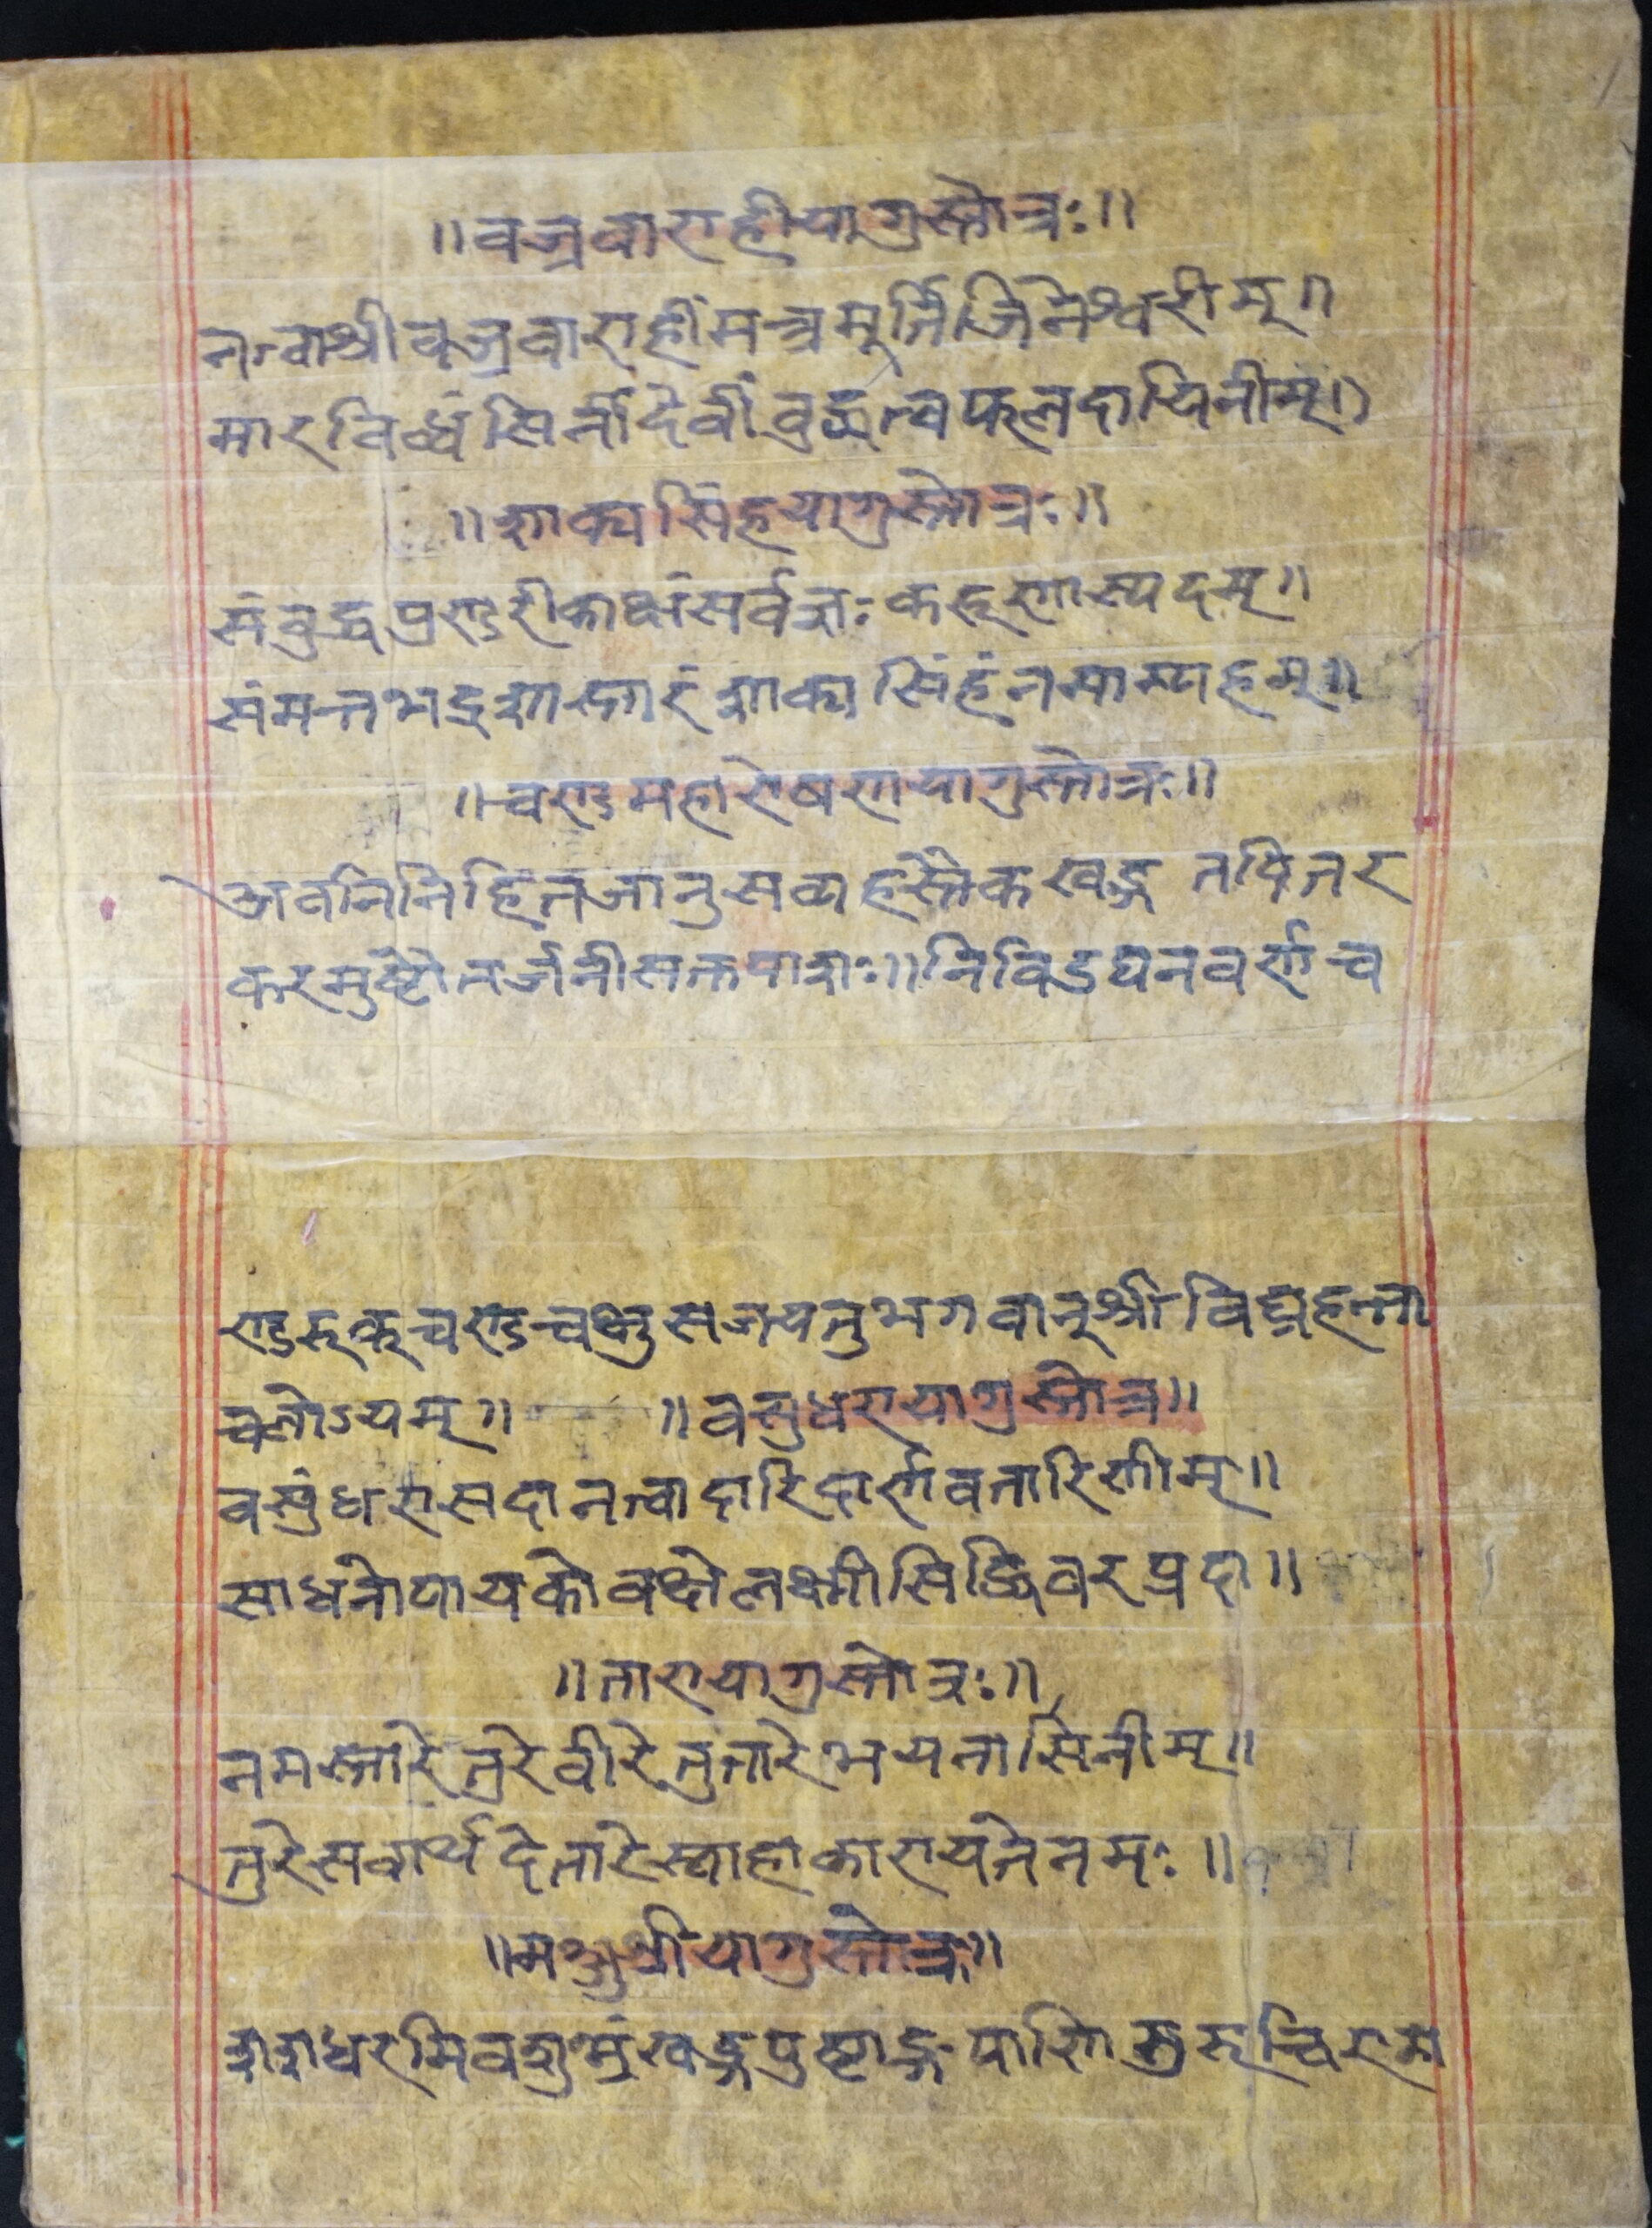 ॥वज्रवाराहीयागुस्तोत्रः॥
नत्वाश्रीवज्रवाराहींमन्त्रमूर्तिजिनेश्वरीम्॥
मारविध्वंसिनींदेवींवुद्धत्वफलदायिनीम्॥
॥शाक्यसिंहयागुस्तोत्रः॥
संवुद्धपुण्डरीकाक्षंसर्वज्ञःकरूणास्पदम्॥
संमन्तभद्रशास्तारंशाक्यसिंहंनमाम्यहम्॥
॥चण्डमहारोषणयागुस्तोत्रः॥
अवनिनिहितजानुसव्यहस्तैकखड्ग तदितर
करमुष्टौतर्जनीसक्तपाशः॥निविडघनवर्णच
ण्डरूक्रूचण्डचक्षुसजयतुभगवान्श्रीविघ्नहन्ता
चलोऽयम्॥ ॥वसुधरायागुस्तोत्र॥
वसुंधरासदानत्वादारिद्रार्णवतारिणीम्॥
साधनोपायकोवक्षेलक्ष्मीसिद्धिवरप्रदा॥
॥तारायागुस्तोत्रः॥
नमस्तारेतुरेवीरेतुतारेभयनासिनीम्॥
तुरेसवार्थदेतारेस्वाहाकारायतेनमः॥
॥मञ्जुश्रीयागुस्तोत्र॥
शशधरमिवशुभ्रंखड्गपुष्टाङ्कपाणिसुरूचिरमा